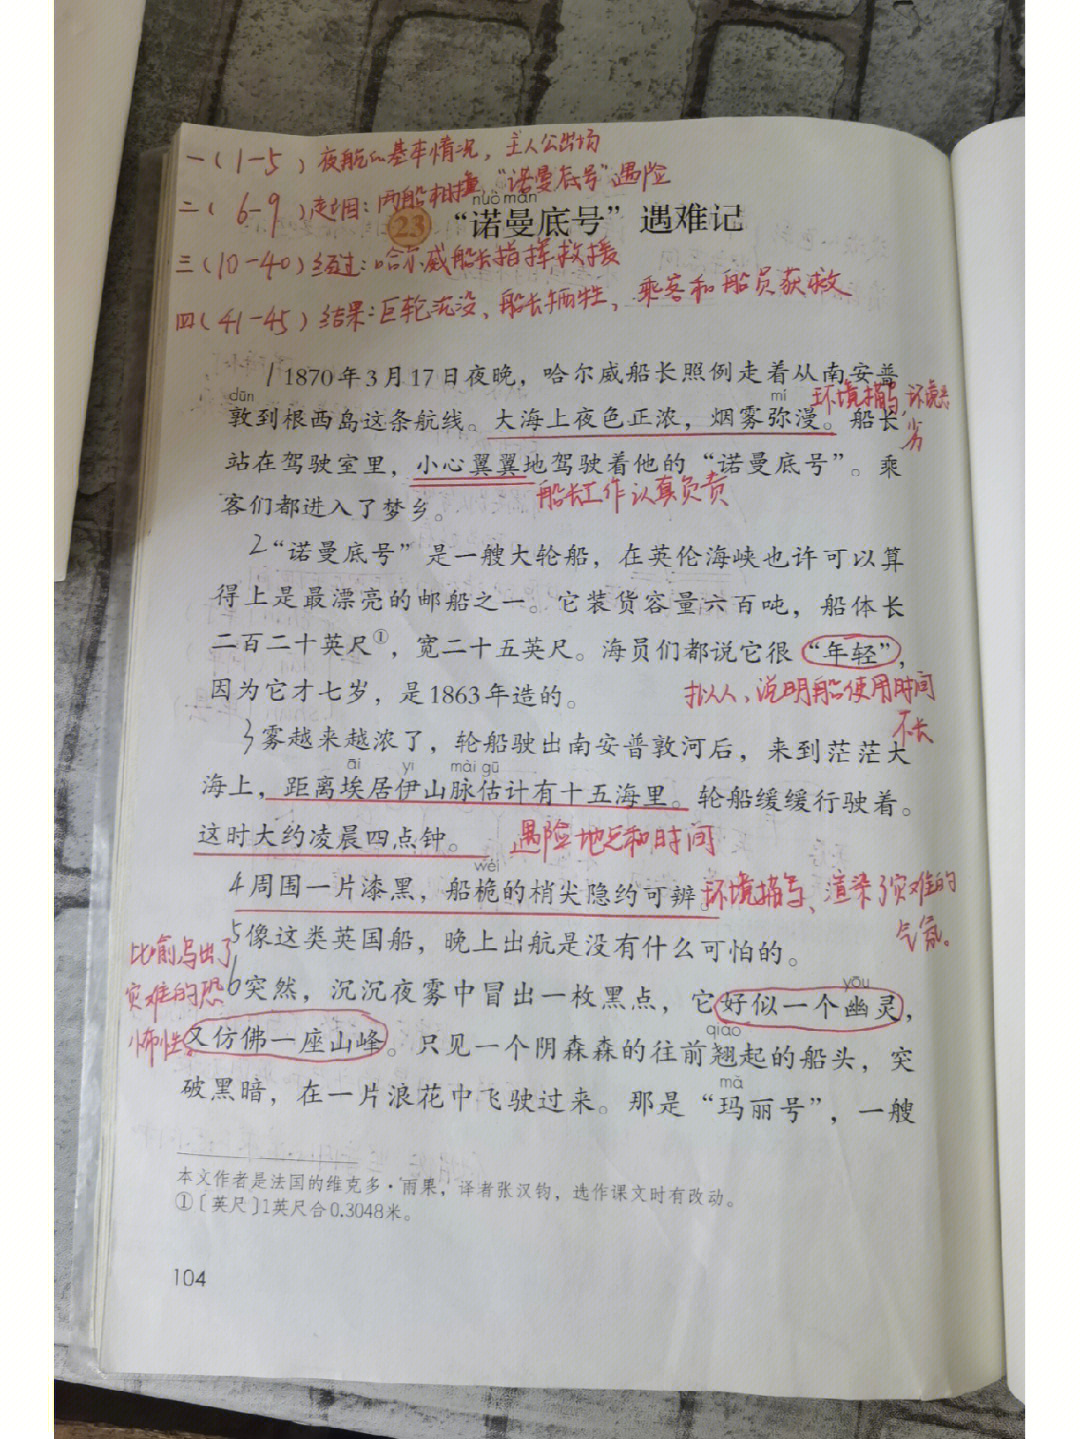 一（1-5）夜航的基本情况，主人公出场
二（6-9）起因：两船相撞，“诺曼底号”遇险
nuò màn
23 “诺曼底号”遇难记
三（10-40）经过：哈尔威船长指挥救援
四（41-45）结果：巨轮沉没、船长牺牲，乘客和船员获救
1 1870年3月17日夜晚，哈尔威船长照例走着从南安普
dūn mí 环境描写，环境恶劣
敦到根西岛这条航线。大海上夜色正浓，烟雾弥漫。船长
站在驾驶室里，小心翼翼地驾驶着他的“诺曼底号”。乘
船长工作认真负责
客们都进入了梦乡。
2“诺曼底号”是一艘大轮船，在英伦海峡也许可以算
得上是最漂亮的邮船之一。它装货容量六百吨，船体长
二百二十英尺①，宽二十五英尺。海员们都说它很“年轻”，
因为它才七岁，是1863年造的。
拟人、说明船使用时间
不长
3雾越来越浓了，轮船驶出南安普敦河后，来到茫茫大
āi yī mài gū
海上，距离埃居伊山脉估计有十五海里。轮船缓缓行驶着。
这时大约凌晨四点钟。 遇险地点和时间
wéi
4周围一片漆黑，船桅的梢尖隐约可辨。环境描写、渲染了灾难的
气氛。
5像这类英国船，晚上出航是没有什么可怕的。
比喻，写出了
灾难的恐
怖性。
yōu
6突然，沉沉夜雾中冒出一枚黑点，它好似一个幽灵，
qiào
又仿佛一座山峰。只见一个阴森森的往前翘起的船头，突
mǎ
破黑暗，在一片浪花中飞驶过来。那是“玛丽号”，一艘
本文作者是法国的维克多·雨果，译者张汉钧，选作课文时有改动。
①〔英尺〕1英尺合0.3048米。
104